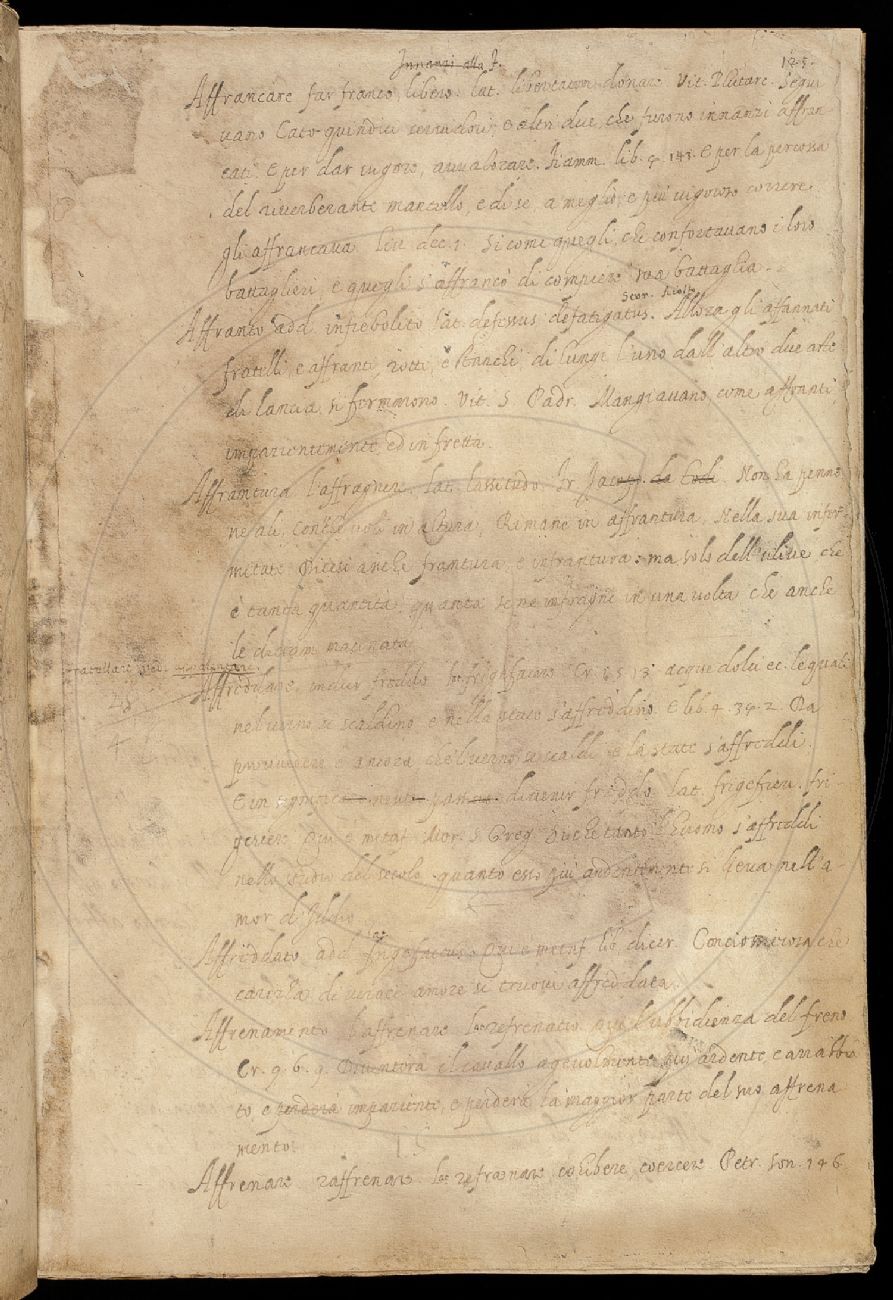 Innanzi alla F.
125.
Affrancare far franco, libero. lat. libertatem donare Vit. Plutarc. Segui
vano Cato quindici servidori, e altri due, che furono innanzi affran
cati. E per dar vigore, avvalorare. Fiamm. lib. 4. 143. E per la percossa
del riverberante mantello, e di se, a meglio, e più vigoroso correre
gli affrancava. Liv. dec. 1. Si come quegli, che confortavano i loro
battaglieri, e quegli s'affrancò di compiere sua battaglia.
Stor. Aiolf.
Affranto add. infiebolito lat. defessus defatigatus. Allora gli affannati
fratelli, e affranti, rotti, e stanchi, di lungi l'uno dall'altro due aste
di lancia, si fermmono. Vit. S. Padr. Mangiavano, come affranti
impazientemente, ed in fretta.
Affrantura l'affragnere. lat. lassitudo. Fr. Jacop. da Todi. Non ha penne
ne ali, con che voli in altura, Rimane in affrantura, Nella sua infer-
mitate. Dicesi anche frantura, e infrantura: ma solo dell'ulive che
è tanta quantità, quanta se ne infragne in una volta che anche
le diciam macinata
Affreddare, indur freddo lat. frigefacere Cr. 1. 5. 13. acque dolci ec. le quali
nel verno si scaldino e nella state s'affreddino. E lib. 4. 39. 2. Da
provvedere è ancora che'l verno si scaldi e la state s'affreddi.
E in signific. neutr. pass. divenir freddo. lat. frigefieri. fri-
gescere. Qui è metaf. Mor. S. Greg. Diche tanto l'huomo s'affreddi
nello studio del secolo quanto esso più ardentemente si lieva nell'a-
mor di Iddio
Affreddato, add. lat. frigefactus. Qui è metaf. lib. dicer. Conciossiecosa che
carità di verace amore si truovi affreddata.
Affrenamento l'affrenare lat. refrenatio qui l'ubbidienza del freno
Cr. 9. 6. 9. Diventerà il cavallo agevolmente più ardente, e arrabbia
to e perderà impaziente, e perderà la maggior parte del suo affrena
mento.
Affrenare raffrenare lat. refraenare, cohibere, coercere Petr. Son. 146